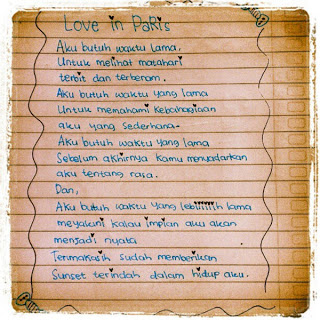 Love in Paris
Aku butuh waktu lama.
Untuk melihat matahari
terbit dan terbenam.
Aku butuh waktu yang lama
Untuk memahami kebahagiaan
aku yang sederhana-
Aku butuh waktu yang lama
Sebelum akhirnya kamu menyadarkan
aku tentang rasa.
Dan,
Aku butuh waktu yang lebiiiiih lama
meyakini kalau impian aku akan
menjadi nyata
Terimakasih sudah memberikan
Sunset terindah dalam hidup aku.